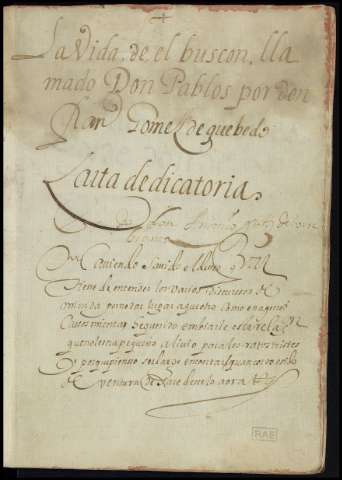 La Vida de el buscon, lla
mado Don Pablos por don
fran.co Gomez de quebedo
Carta dedicatoria.
don Antonio
Haviendo savido el deseo q Vm
tiene de entender los varios discursos de
mi vida por no dar lugar a que otro como en ajenos
casos mienta, e querido embiarle esta rela
que no le sera pequeño alivio para los ratos tristes
Y porque pienso ser largo en contar quan corto e sido
de ventura dejare de serlo aora
RAE